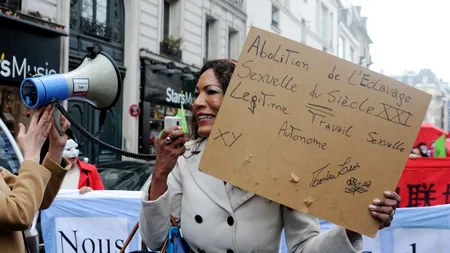 Star's Music
Star's
Abolition de l'Esclavage
Sexuelle du Siècle XXI
Légitime = Travail Sexuelle
Autonome
XY
Nous